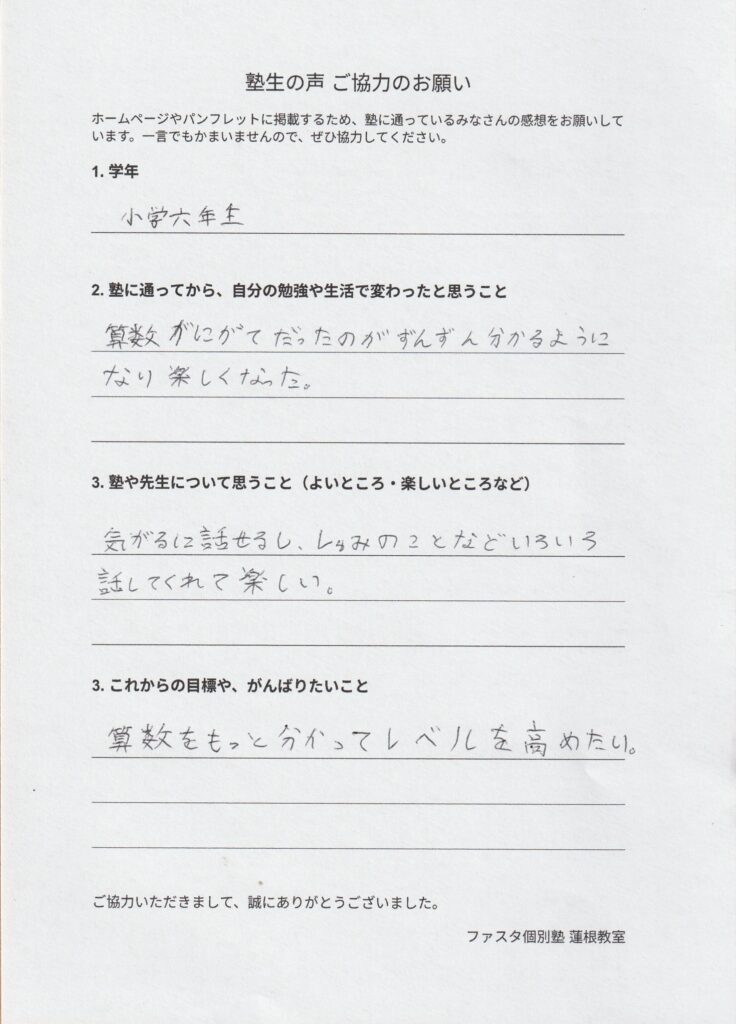 塾生の声 ご協力のお願い
ホームページやパンフレットに掲載するため、塾に通っているみなさんの感想をお願いして
います。一言でもかまいませんので、ぜひ協力してください。
1. 学年
小学六年生
2. 塾に通ってから、自分の勉強や生活で変わったと思うこと
算数がにがてだったのがずんずん分かるように
なり楽しくなった。
3. 塾や先生について思うこと（よいところ・楽しいところなど）
気がるに話せるし、しゅみのことなどいろいろ
話してくれて楽しい。
3. これからの目標や、がんばりたいこと
算数をもっと分かってレベルを高めたい。
ご協力いただきまして、誠にありがとうございました。
ファスタ個別塾 蓮根教室